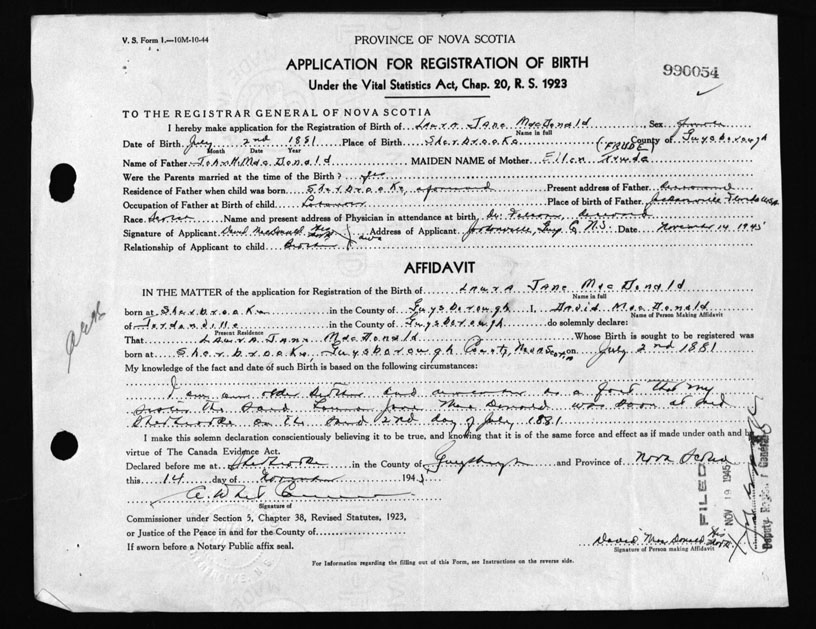 V. S. Form 1.—10M-10-44
PROVINCE OF NOVA SCOTIA
APPLICATION FOR REGISTRATION OF BIRTH
Under the Vital Statistics Act, Chap. 20, R. S. 1923
990054
TO THE REGISTRAR GENERAL OF NOVA SCOTIA
I hereby make application for the Registration of Birth of Laura Jane MacDonald Sex
Name in full
Date of Birth July 2nd 1881 Place of Birth Sherbrooke County of Guysborough
Month Date Year
(FRUDE)
Name of Father John H. MacDonald MAIDEN NAME of Mother Ellen Frude
Were the Parents married at the time of the Birth? yes
Residence of Father when child was born Sherbrooke, Present address of Father
Occupation of Father at Birth of child Place of birth of Father
Race Name and present address of Physician in attendance at birth
Signature of Applicant David MacDonald his Address of Applicant Guy Co N.S. Date November 14 1945
Relationship of Applicant to child
AFFIDAVIT
IN THE MATTER of the application for Registration of the Birth of Laura Jane MacDonald
Name in full
born at Sherbrooke in the County of Guysborough I, David MacDonald
Name of Person Making Affidavit
of Jordanville in the County of Guysborough do solemnly declare:
Present Residence
That Laura Jane MacDonald Whose Birth is sought to be registered was
born at Sherbrooke, Guysborough County, Nova Scotia on July 2nd 1881
My knowledge of the fact and date of such Birth is based on the following circumstances:
I am an older brother and as a fact that my
sister the said Laura Jane MacDonald was born at said
Sherbrooke on the said 2nd day of July 1881
I make this solemn declaration conscientiously believing it to be true, and knowing that it is of the same force and effect as if made under oath and by
virtue of The Canada Evidence Act.
Declared before me at Sherbrooke in the County of Guysborough and Province of Nova Scotia
this 14 day of November 1945
Signature of
Commissioner under Section 5, Chapter 38, Revised Statutes, 1923,
or Justice of the Peace in and for the County of
If sworn before a Notary Public affix seal.
David MacDonald his
Signature of Person making Affidavit
FILED
NOV 19 1945
Deputy Registrar General
For Information regarding the filling out of this Form, see Instructions on the reverse side.